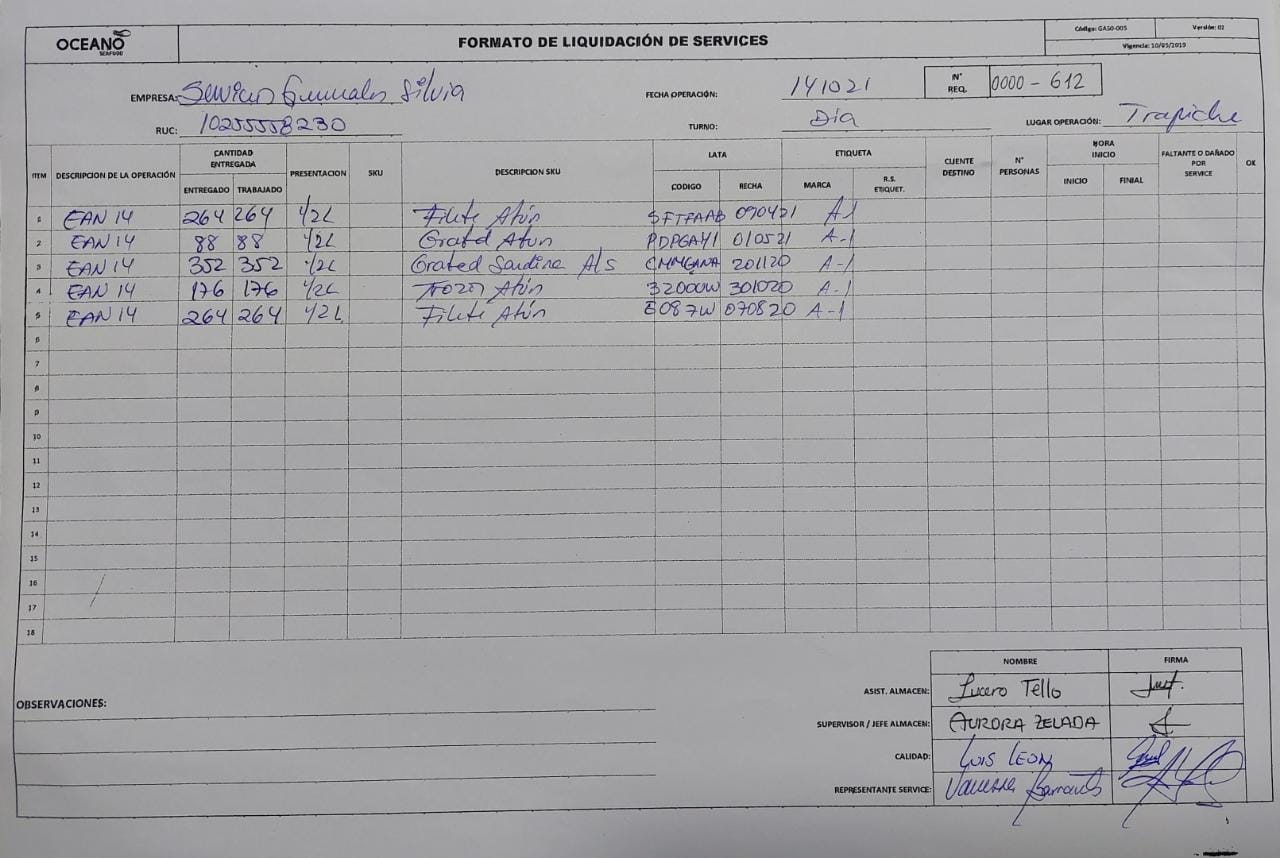 OCEANO SEAFOOD
FORMATO DE LIQUIDACIÓN DE SERVICES
Código: GASO-005 Versión: 02
Vigencia: 10/05/2019
EMPRESA: Servicios Generales Silvia
FECHA OPERACIÓN: 141021
N° REQ. 0000 - 612
RUC: 10255558230
TURNO: Día
LUGAR OPERACIÓN: Trapiche
ITEM DESCRIPCION DE LA OPERACIÓN CANTIDAD ENTREGADA PRESENTACION SKU DESCRIPCION SKU LATA ETIQUETA CLIENTE DESTINO N° PERSONAS HORA INICIO FALTANTE O DAÑADO POR SERVICE OK
ENTREGADO TRABAJADO CODIGO FECHA MARCA R.S. ETIQUET. INICIO FINIAL
1 EAN 14 264 264 1/2L Filete Atún SFTPAAB 090421 A1
2 EAN 14 88 88 1/2L Grated Atun PDPGAY1 010521 A-1
3 EAN 14 352 352 1/2L Grated Sardina A/S CMMGANA 201120 A-1
4 EAN 14 176 176 1/2L Trozos Atún 32000W 301020 A-1
5 EAN 14 264 264 1/2L Filete Atún E087W 070820 A-1
6
7
8
9
10
11
12
13
14
15
16
17
18
NOMBRE FIRMA
OBSERVACIONES:
ASIST. ALMACEN: Lucero Tello
SUPERVISOR / JEFE ALMACEN: AURORA ZELADA
CALIDAD: LUIS LEON
REPRESENTANTE SERVICE: Vanessa